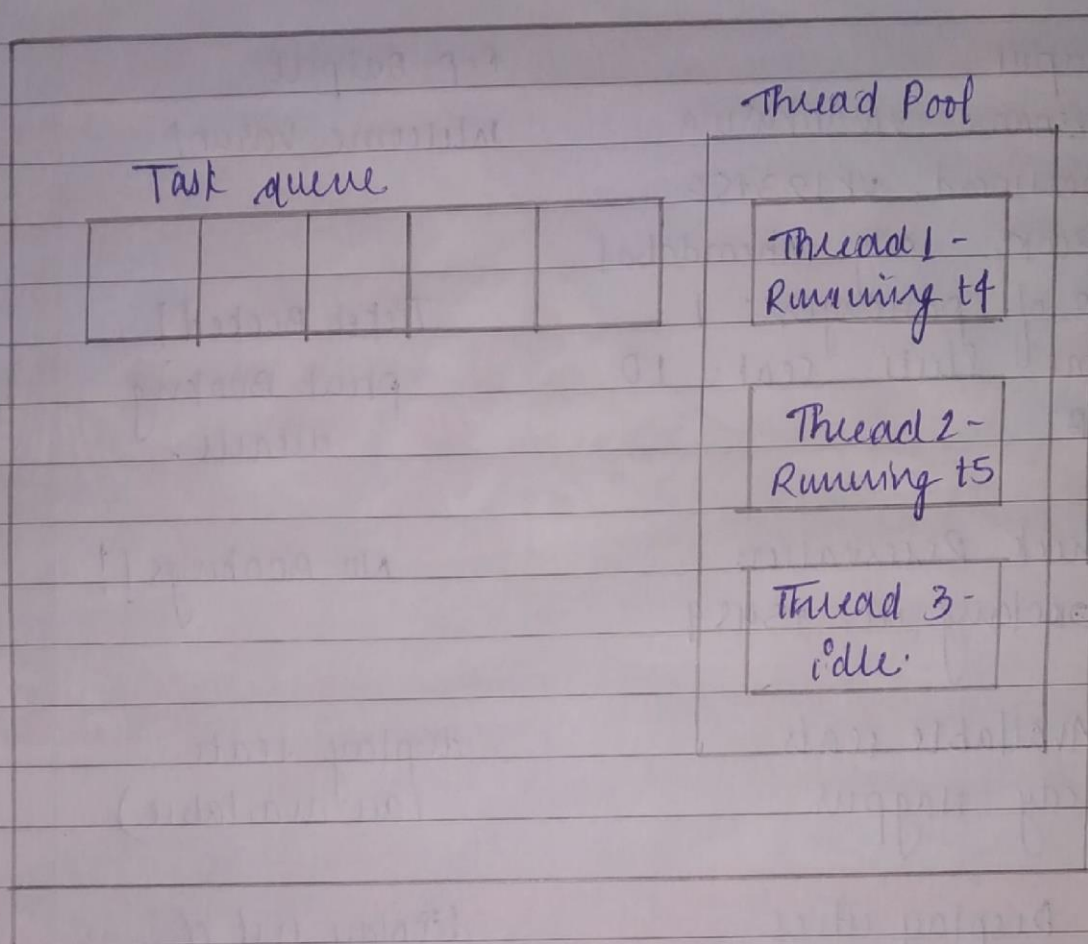 Thread Pool
Task queue
Thread 1 -
Running t4
Thread 2 -
Running t5
Thread 3 -
idle.